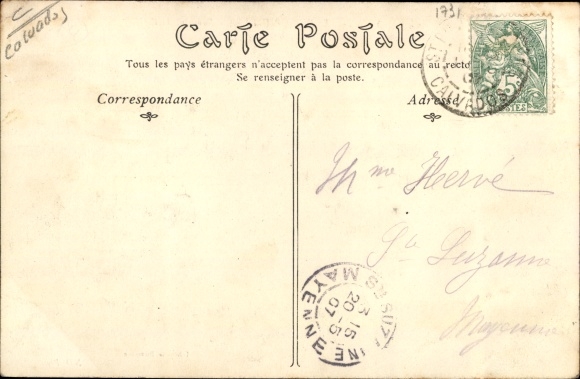 Calvados
1731
Carte Postale
Tous les pays étrangers n'acceptent pas la correspondance au recto
Se renseigner à la poste.
Correspondance
Adresse
CALVADOS
5c
POSTES
Mme Hervé
Ste Suzanne
Mayenne
MAYENNE
3 15
20-5
07